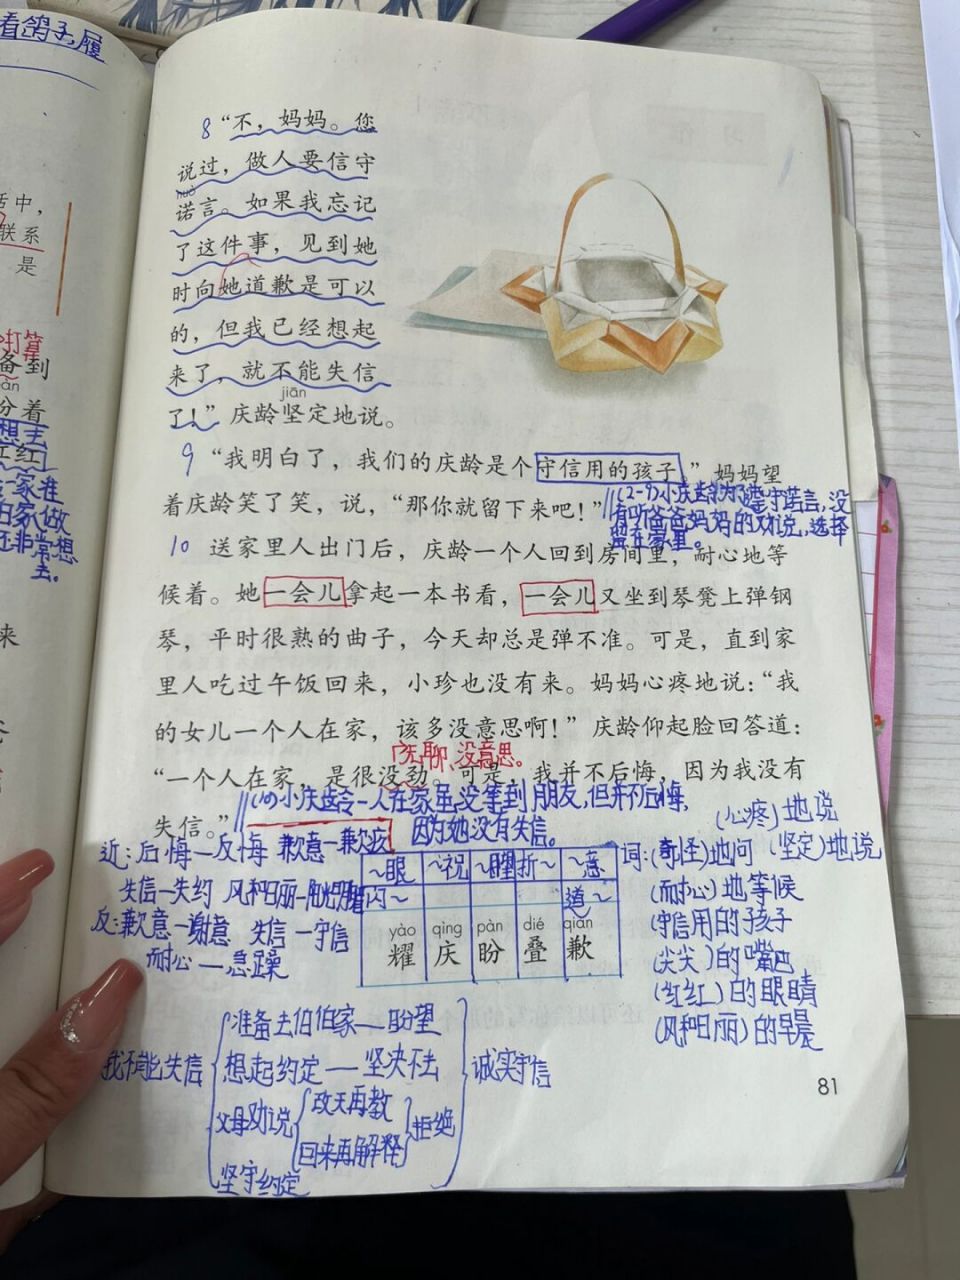 看鸽子,履
活中，
联系
是
打算
备到
分着
想去
红红
一家准
非常想
去。
来
8 “不，妈妈。您
说过，做人要信守
nuò
诺言。如果我忘记
了这件事，见到她
时向她道歉是可以
的，但我已经想起
来了，就不能失信
jiān
了！”庆龄坚定地说。
9 “我明白了，我们的庆龄是个守信用的孩子。”妈妈望
着庆龄笑了笑，说，“那你就留下来吧！”
‖(2-9)小庆龄为了遵守诺言,没
有听爸爸妈妈的劝说,选择
留在家里。
10 送家里人出门后，庆龄一个人回到房间里，耐心地等
候着。她一会儿拿起一本书看，一会儿又坐到琴凳上弹钢
琴，平时很熟的曲子，今天却总是弹不准。可是，直到家
里人吃过午饭回来，小珍也没有来。妈妈心疼地说：“我
的女儿一个人在家，该多没意思啊！”庆龄仰起脸回答道：
无聊、没意思。
“一个人在家，是很没劲。可是，我并不后悔，因为我没有
失信。”
‖(10)小庆龄一人在家虽没等到朋友,但并不后悔,
因为她没有失信。
近:后悔—反悔 歉意—歉疚
失信—失约 风和日丽—阳光明媚
反:歉意—谢意 失信—守信
耐心—急躁
~眼 ~祝 ~望 折~ ~意
闪~ 道~
yào qìng pàn dié qiàn
耀 庆 盼 叠 歉
(心疼)地说
词:(奇怪)地问 (坚定)地说
(耐心)地等候
(守信用)的孩子
(尖尖)的嘴巴
(红红)的眼睛
(风和日丽)的早晨
我不能失信
准备去伯伯家—盼望
想起约定—坚决不去
父母劝说
改天再教
回来再解释
拒绝
坚守约定
诚实守信
81